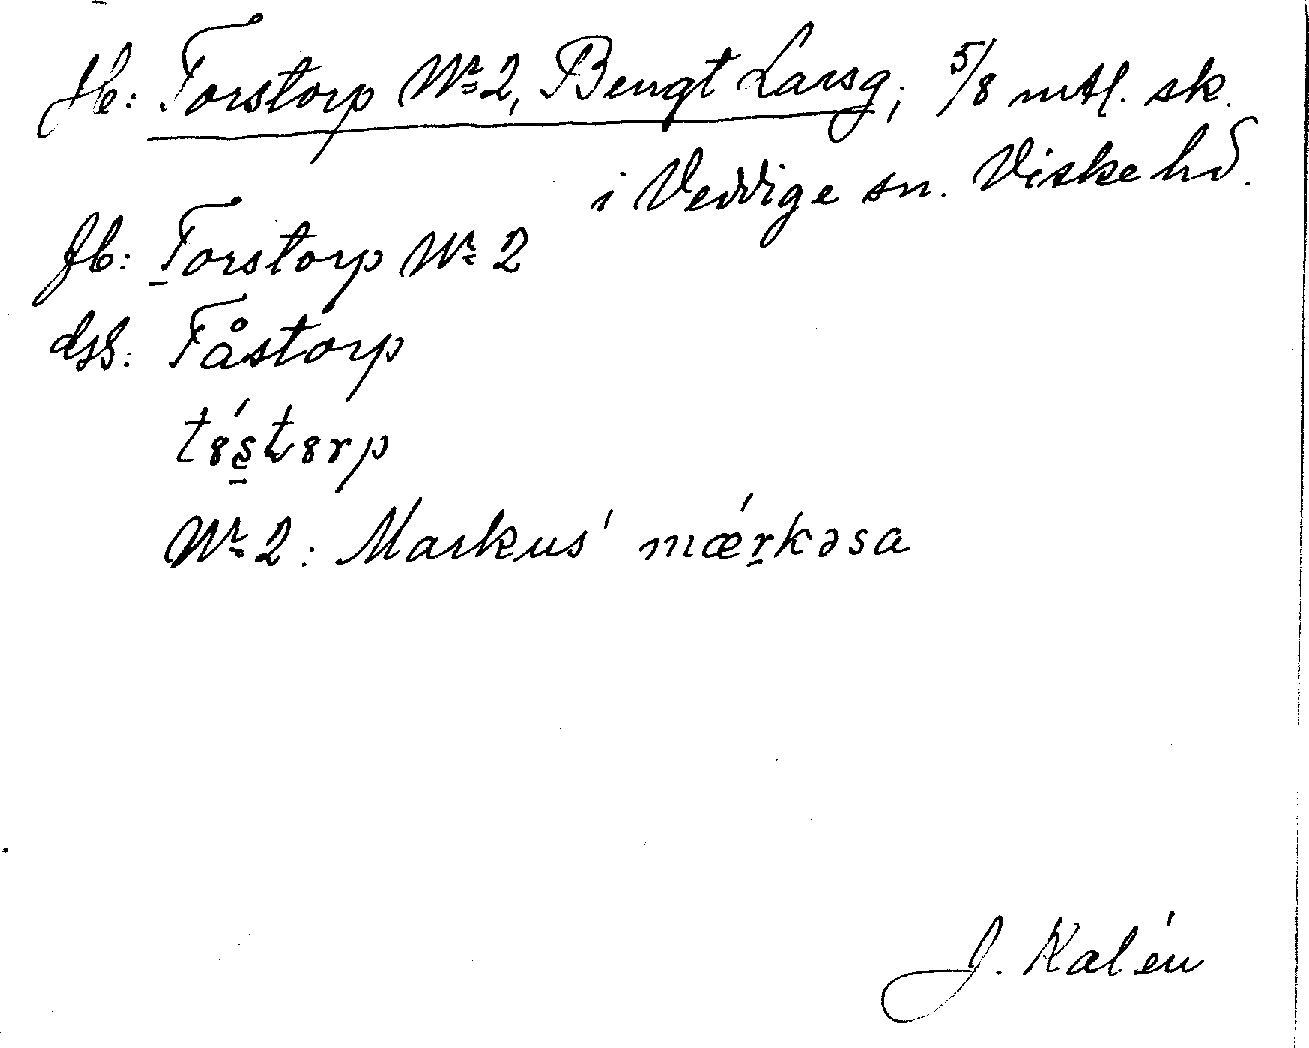 Jb: Torstorp Nr 2, Bengt Larsg; 5/8 mtl. sk.
i Veddige sn. Viske hd.
fb: Torstorp Nr 2
dss. Tåstorp
tɞ́s̠tɞrp
Nr 2: Markus' mǽr̠kəsa
J. Kalén